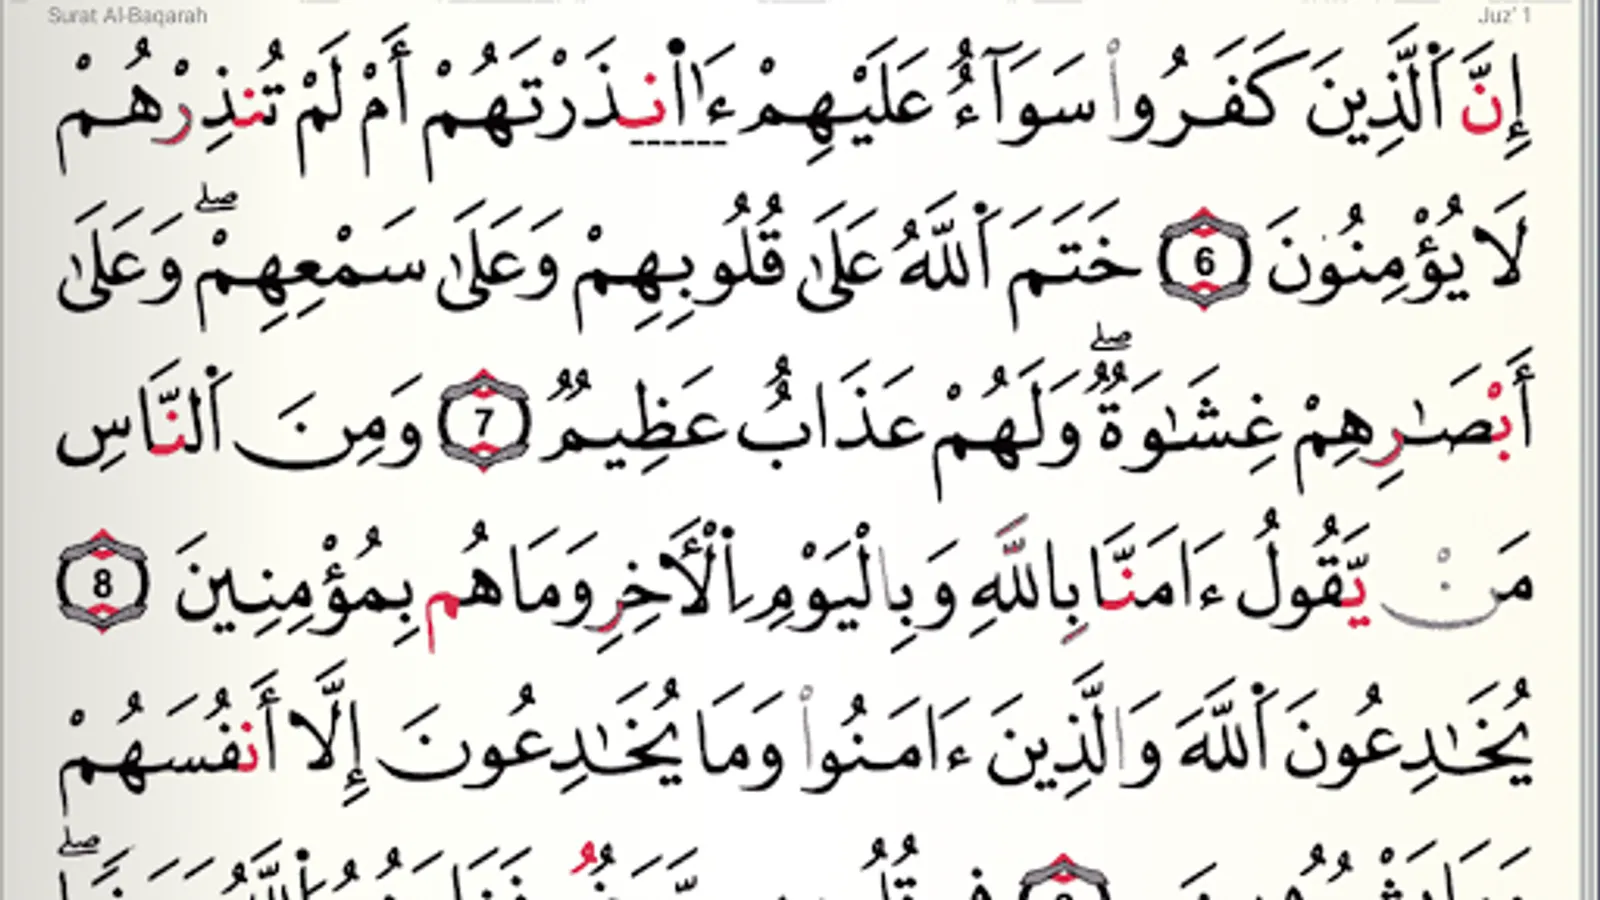 Surat Al-Baqarah
Juz' 1
إِنَّ ٱلَّذِينَ كَفَرُوا۟ سَوَآءٌ عَلَيْهِمْ ءَا۬نذَرْتَهُمْ أَمْ لَمْ تُنذِرْهُمْ
لَا يُؤْمِنُونَ 6 خَتَمَ ٱللَّهُ عَلَىٰ قُلُوبِهِمْ وَعَلَىٰ سَمْعِهِمْ ۖ وَعَلَىٰ
أَبْصَـٰرِهِمْ غِشَـٰوَةٌ ۖ وَلَهُمْ عَذَابٌ عَظِيمٌ 7 وَمِنَ ٱلنَّاسِ
مَنْ يَّقُولُ ءَامَنَّا بِاللَّهِ وَبِالْيَوْمِ اِ۬لْأَخِرِ وَمَا هُم بِمُؤْمِنِينَ 8
يُخَـٰدِعُونَ ٱللَّهَ وَالَّذِينَ ءَامَنُوا۟ وَمَا يُخَـٰدِعُونَ إِلَّا أَنفُسَهُمْ